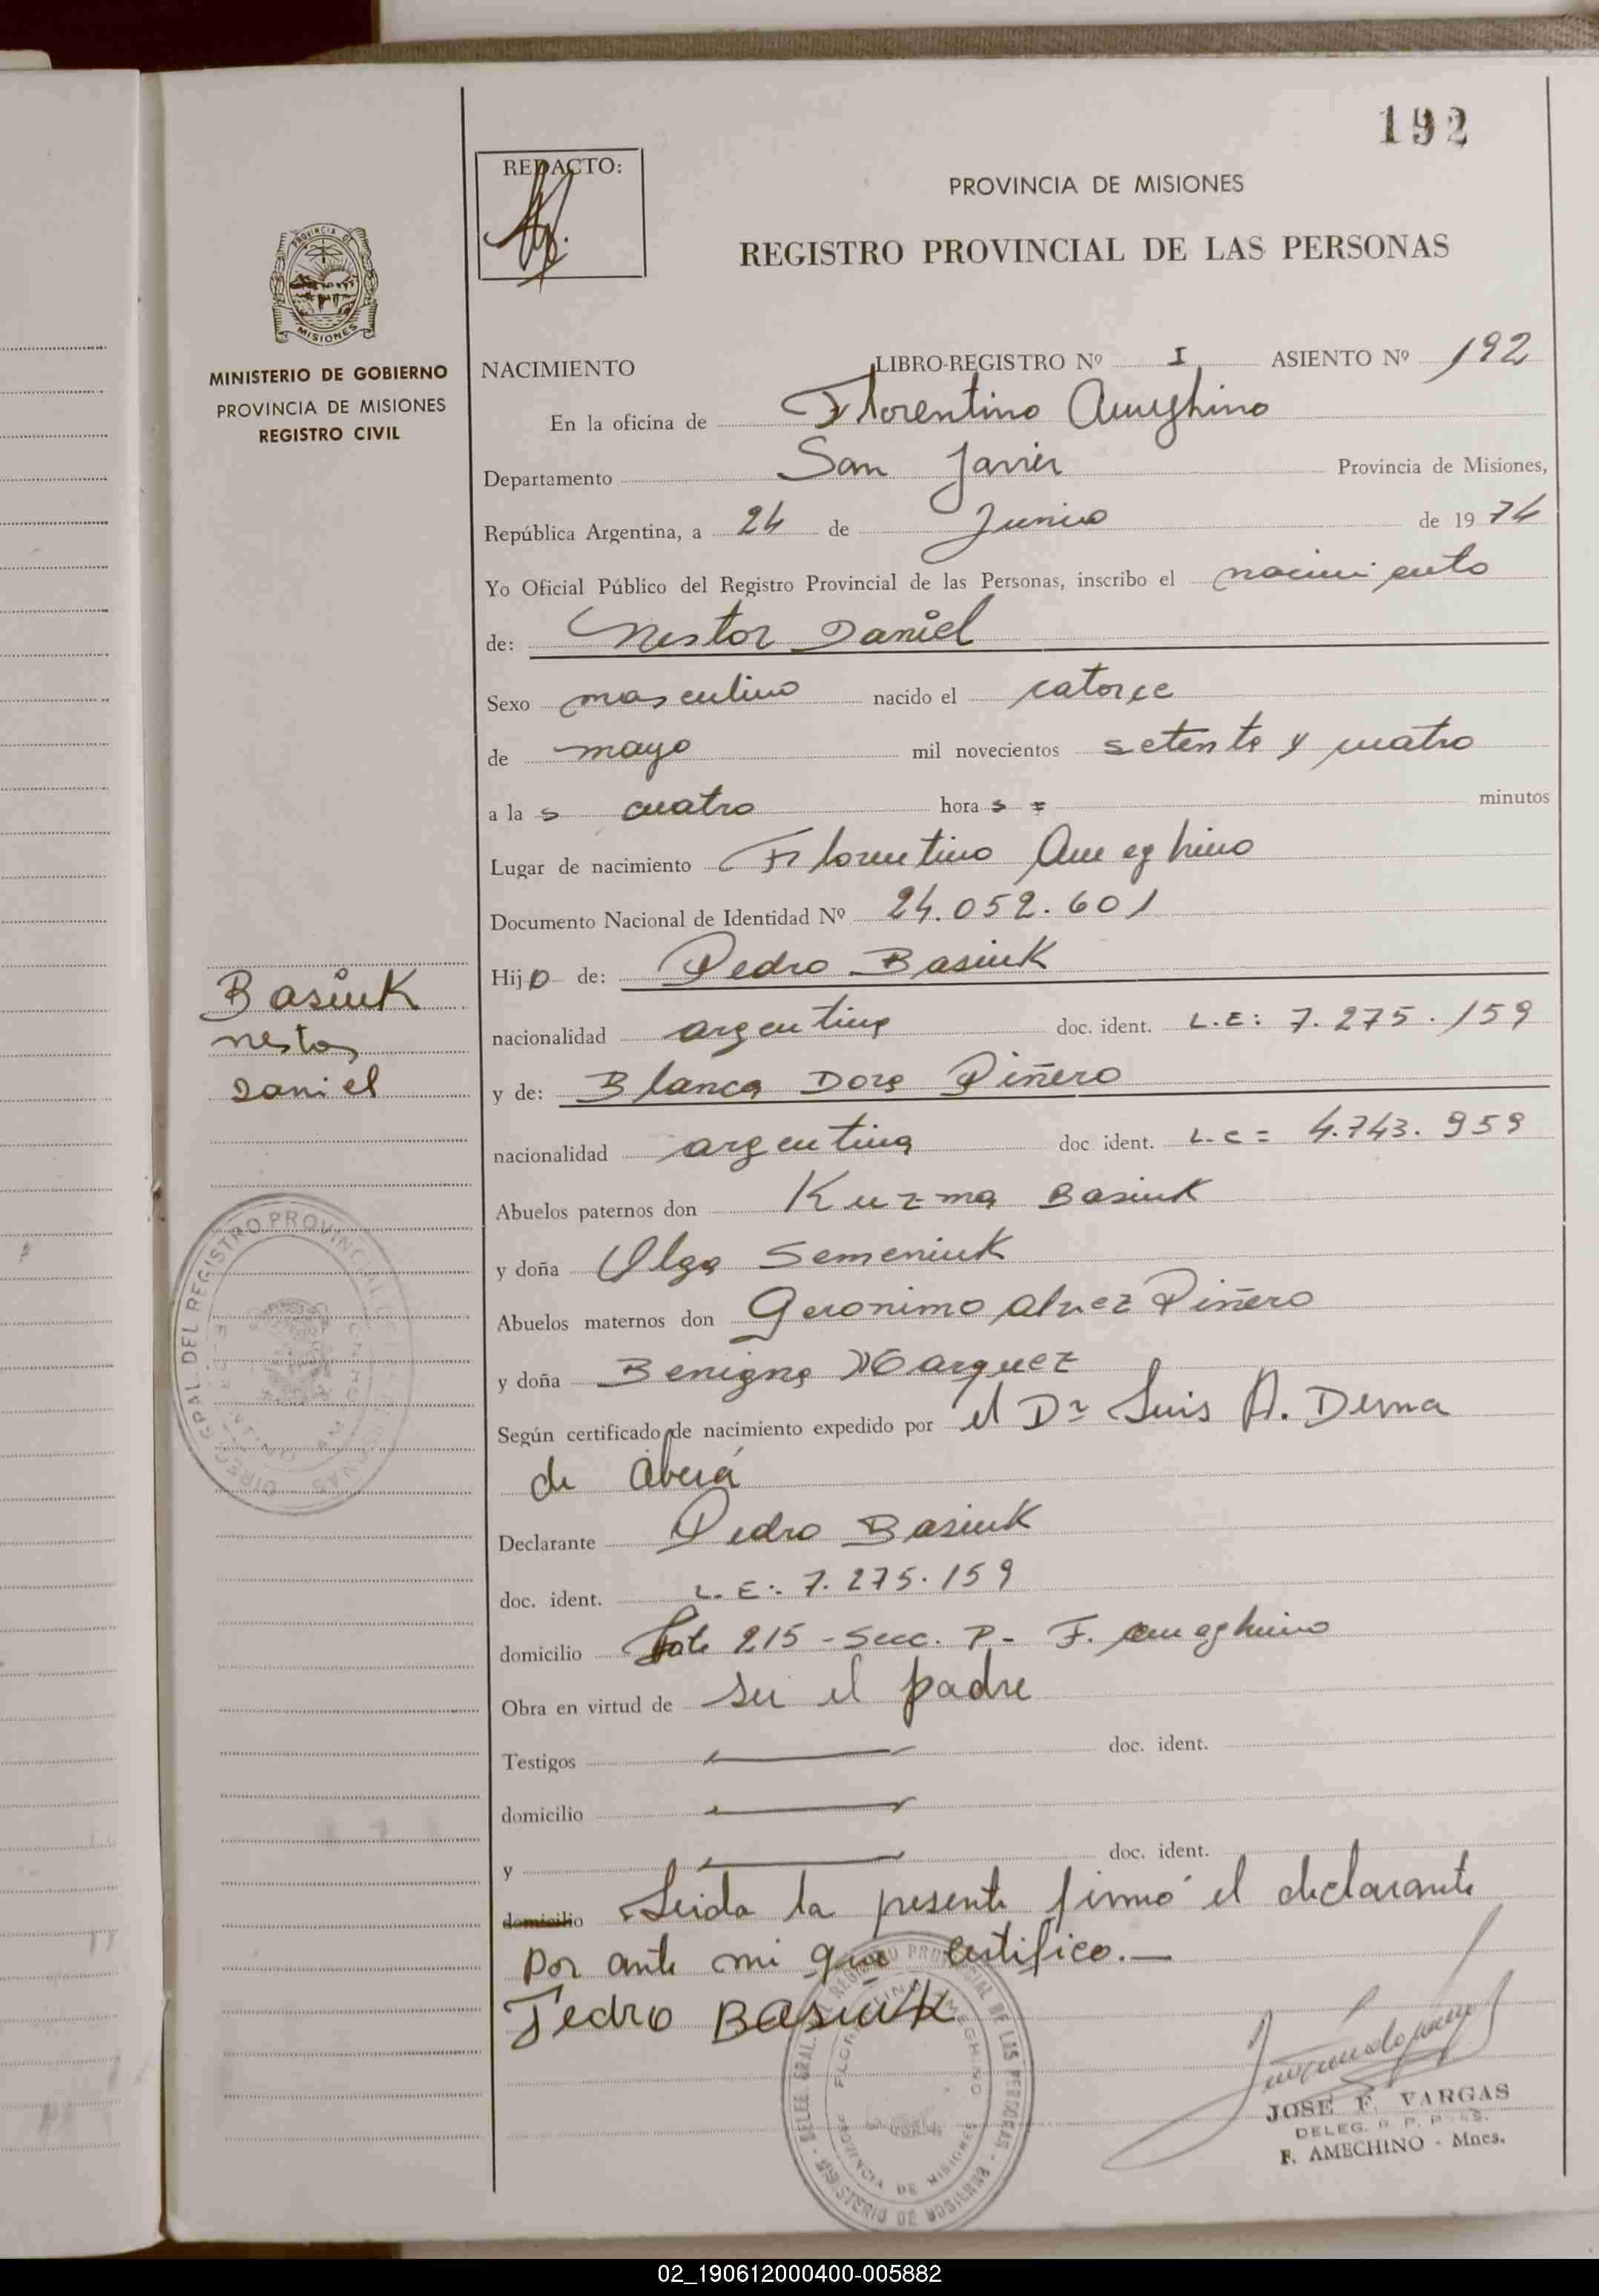 192
REDACTO:
PROVINCIA DE MISIONES
REGISTRO PROVINCIAL DE LAS PERSONAS
MISIONES
MINISTERIO DE GOBIERNO
PROVINCIA DE MISIONES
REGISTRO CIVIL
NACIMIENTO LIBRO-REGISTRO Nº I ASIENTO Nº 192
En la oficina de Florentino Ameghino
Departamento San Javier Provincia de Misiones,
República Argentina, a 24 de Junio de 1974
Yo Oficial Público del Registro Provincial de las Personas, inscribo el nacimiento
de: Nestor Daniel
Sexo masculino nacido el catorce
de mayo mil novecientos setenta y cuatro
a la s cuatro hora s = minutos
Lugar de nacimiento Florentino Ameghino
Documento Nacional de Identidad Nº 24.052.601
Basiuk
Nestor
Daniel
Hijo de: Pedro Basiuk
nacionalidad argentina doc. ident. L.E: 7.275.159
y de: Blanca Dora Piñero
nacionalidad argentina doc ident. L.C= 4.743.959
Abuelos paternos don Kuzma Basiuk
y doña Olga Semeniuk
Abuelos maternos don Geronimo Alvez Piñero
y doña Benigna Marquez
Según certificado de nacimiento expedido por el Dr Luis A. Derna
de Oberá
Declarante Pedro Basiuk
doc. ident. L.E:. 7.275.159
domicilio Lote 215 - Secc. P.- F. Ameghino
Obra en virtud de ser el padre
Testigos doc. ident.
domicilio
y doc. ident.
domicilio Leida la presente firmó el declarante
por ante mi que certifico.—
Pedro Basiuk
DIREC. GRAL. DEL REGISTRO PROVINCIAL DE LAS PERSONAS
DELEG. GRAL. DEL REGISTRO PROVINCIAL DE LAS PERSONAS - MINISTERIO DE GOBIERNO
FLORENTINO AMEGHINO
PROVINCIA DE MISIONES
JOSE F. VARGAS
DELEG. R. P. P.
F. AMEGHINO - Mnes.
02_190612000400-005882